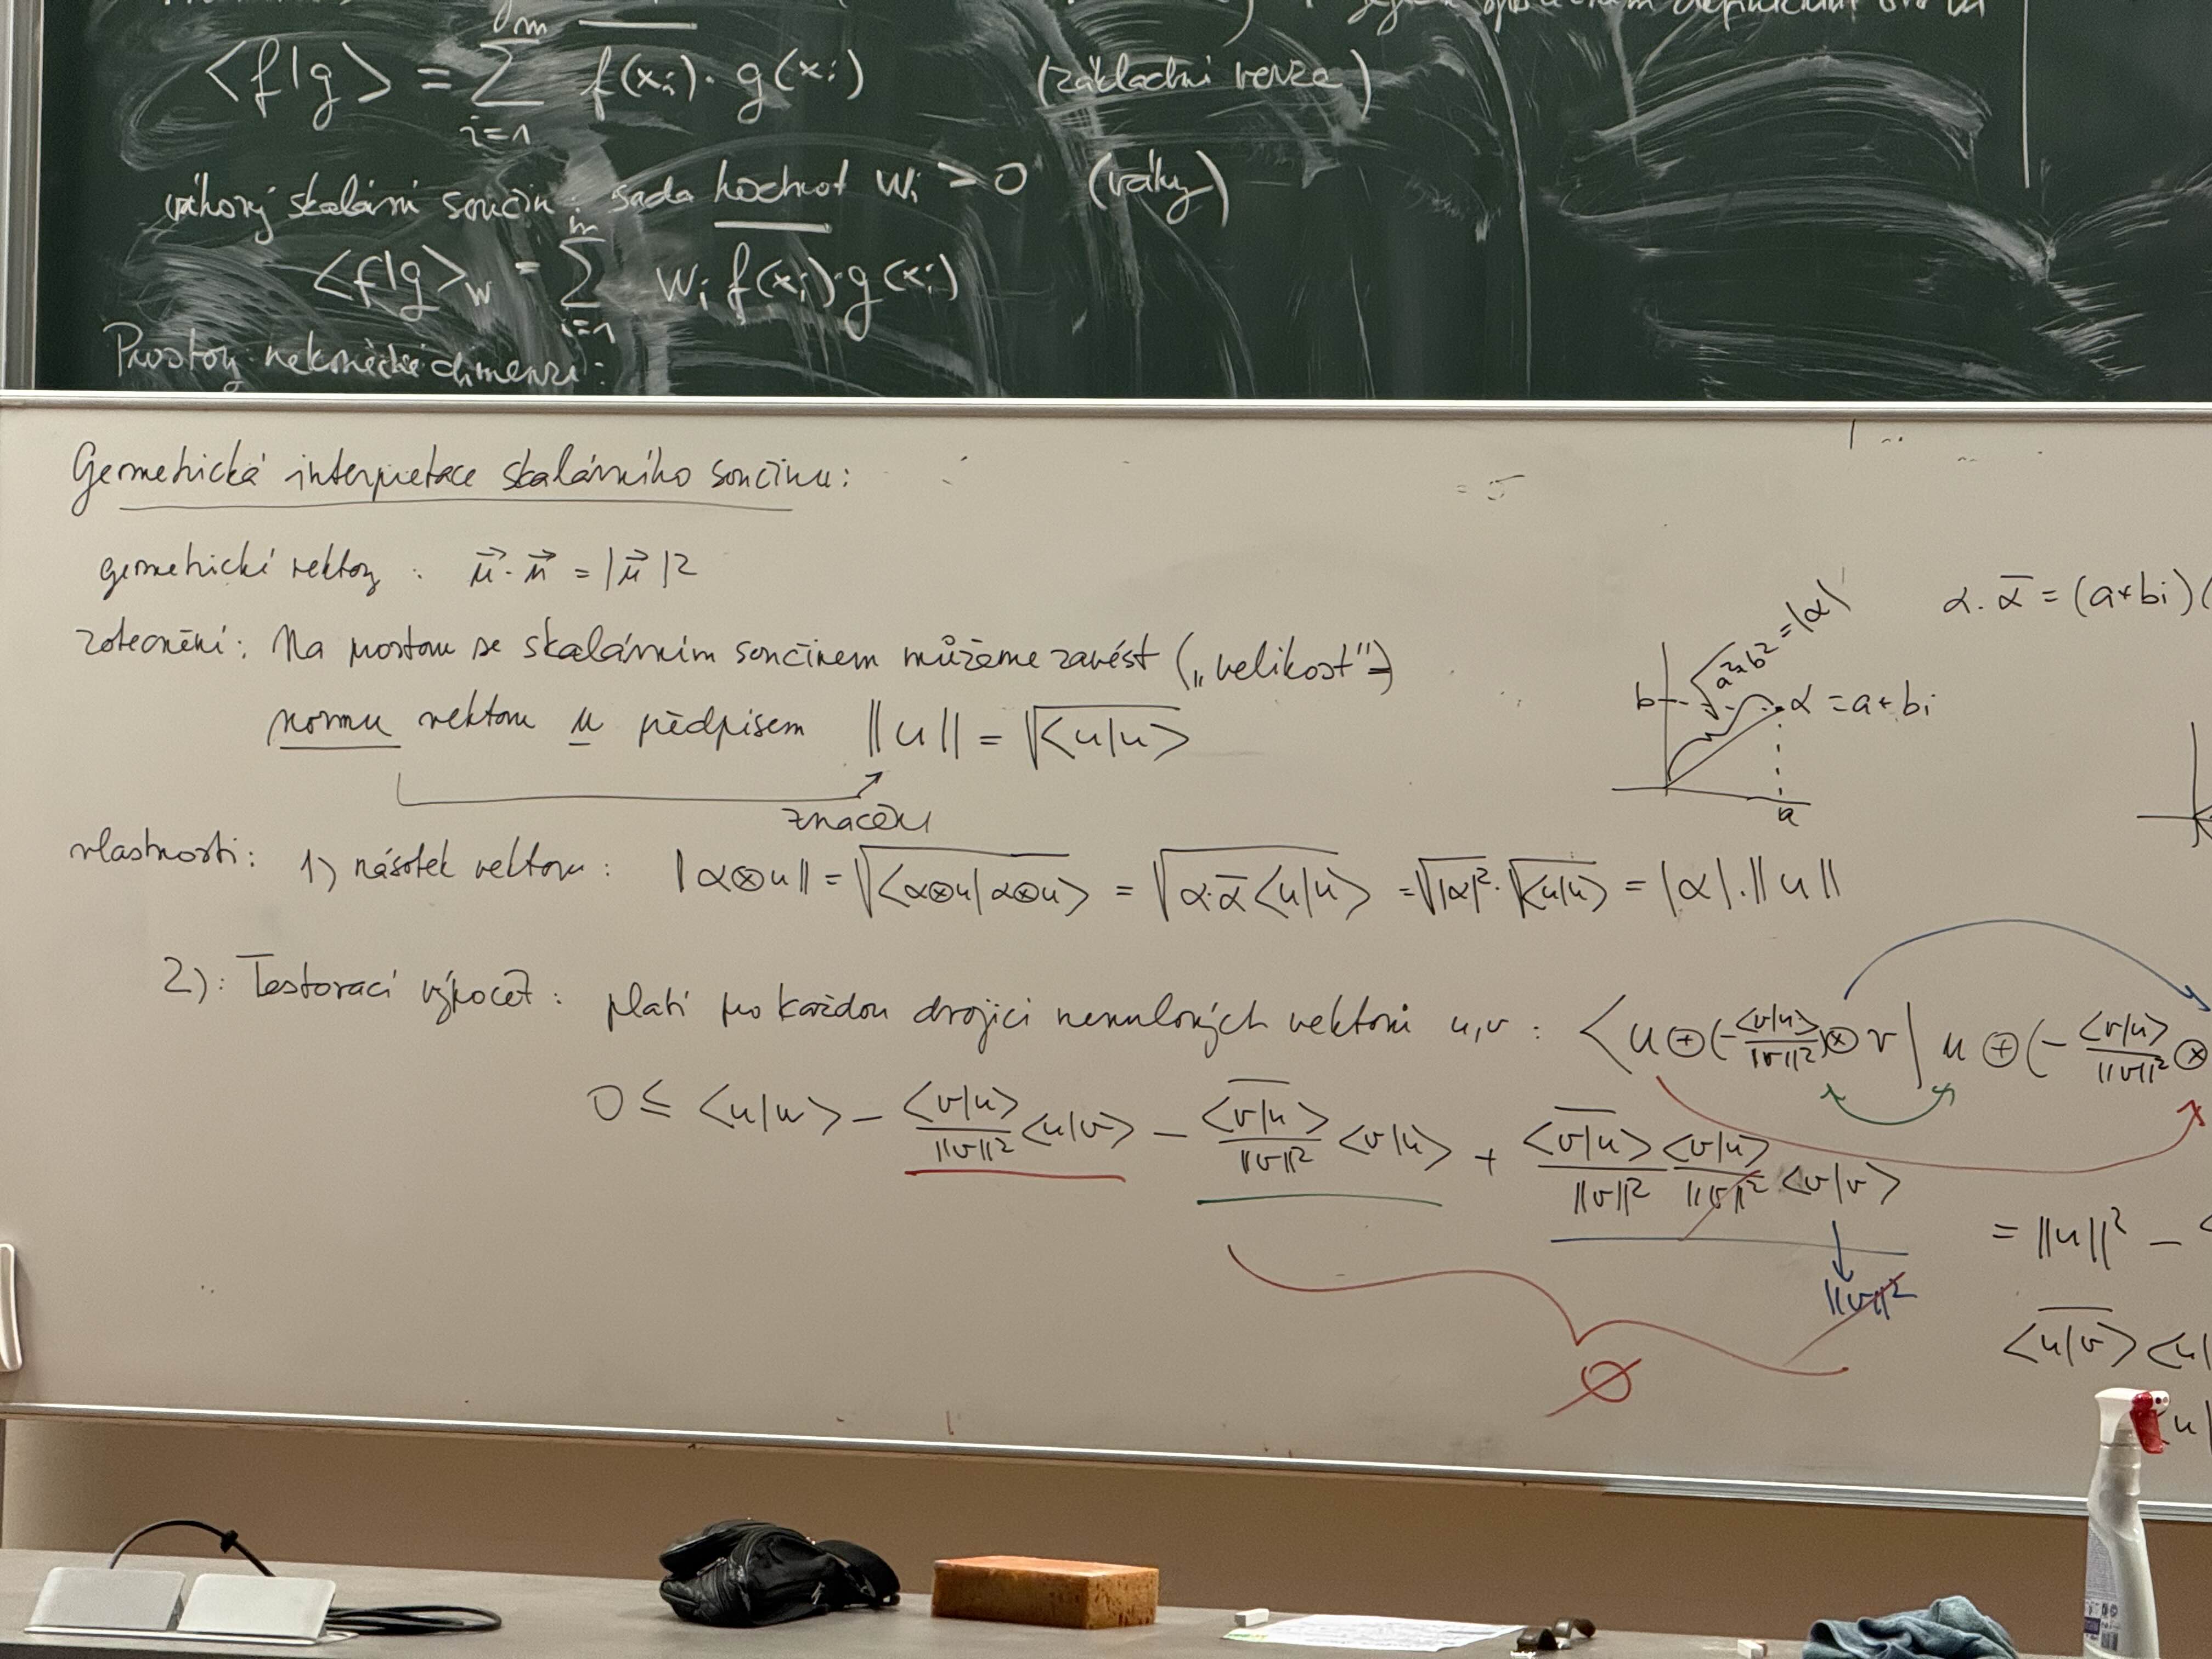 ⟨f|g⟩ = ∑_{i=1}^{m} f(x_i) · g(x_i) (základní verze)
váhový skalární součin : sada hodnot w_i > 0 (váhy)
⟨f|g⟩_w = ∑_{i=1}^{m} w_i f(x_i) · g(x_i)
Prostory nekonečné dimenze :
Geometrická interpretace skalárního součinu :
geometrické vektory : u⃗ · u⃗ = |u⃗|2
zobecnění : Na prostoru se skalárním součinem můžeme zavést („velikost")
normu vektoru u předpisem ||u|| = √⟨u|u⟩
značení
√a²+b² = |α|
b
α = a + bi
a
α . \overline{α} = (a+bi)(
vlastnosti : 1) násobek vektoru : |α⊗u|| = √⟨α⊗u|α⊗u⟩ = √α·\overline{α}⟨u|u⟩ = √|α|² · √⟨u|u⟩ = |α| . ||u||
2) : Testovací výpočet : platí pro každou dvojici nenulových vektorů u,v : ⟨u ⊕ (−⟨v|u⟩/||v||²) ⊗ v | u ⊕ (−⟨v|u⟩/||v||² ⊗
0 ≤ ⟨u|u⟩ − ⟨v|u⟩/||v||² ⟨u|v⟩ − \overline{⟨v|u⟩}/||v||² ⟨v|u⟩ + \overline{⟨v|u⟩}/||v||² ⟨v|u⟩/||v||² ⟨v|v⟩
||v||²
= ||u||² −
∅
\overline{⟨u|v⟩} ⟨u|
u|